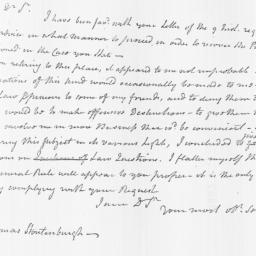 Dr Sr.
I have been fav'd with your Letter of the 9 Inst. req
advice in what manner to proceed in order to recover the P
owned in the Case you State -
on retiring to this place, it appeared to me not improbable
ations of this kind would occasionally be made to me
Law Opinions to some of my friends, and to deny them to
would be to make offensive Distinctions - to give them
involve me in more Business than wd. be convenient -
ing this Subject in its various Lights, I concluded to
ions on Law Questions. I flatter myself th
general Rule will appear to you proper - it is the only
complying with your Request
I am Dr Sr
your most obt. Se
mas Stoutenburgh -